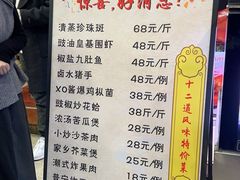 惊喜,好消息!
清蒸珍珠斑 68元/斤
豉油皇基围虾 48元/斤
椒盐九肚鱼 48元/斤
卤水猪手 48元/斤
XO酱爆鸡枞菌 38元/例
豉椒炒花蛤 38元/例
浓汤苦瓜煲 28元/例
小炒沙茶肉 28元/例
家乡芥菜煲 25元/例
潮式炸果肉 18元/例
十二道风味特价菜